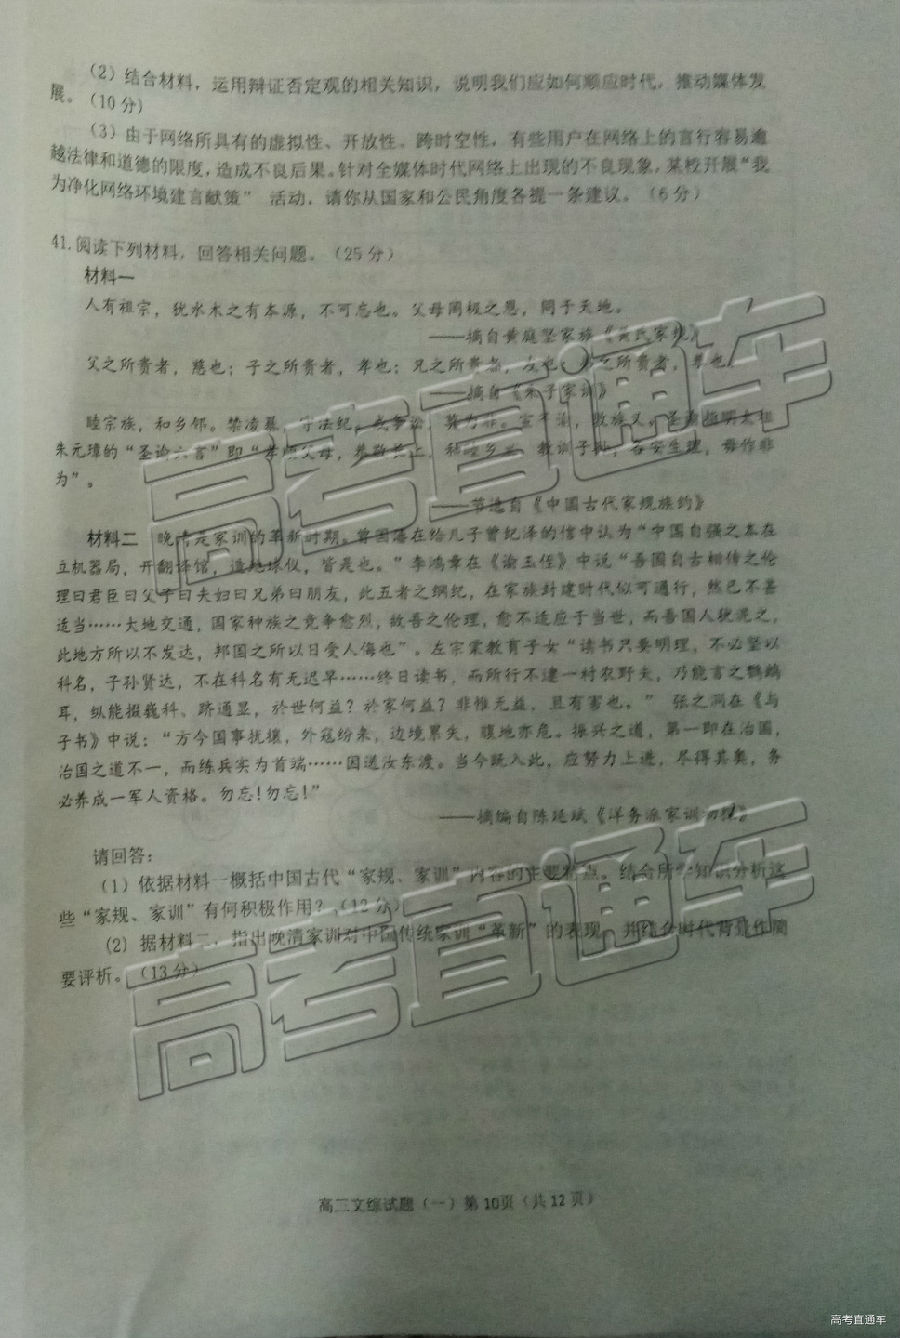 (2) 结合材料，运用辩证否定观的相关知识，说明我们应如何顺应时代，推动媒体发
展。(10分)
(3) 由于网络所具有的虚拟性、开放性、跨时空性，有些用户在网络上的言行容易逾
越法律和道德的限度，造成不良后果。针对全媒体时代网络上出现的不良现象，某校开展“我
为净化网络环境建言献策” 活动，请你从国家和公民角度各提一条建议。(6分)
41.阅读下列材料，回答相关问题。(25分)
材料一
人有祖宗，犹水木之有本源，不可忘也。父母罔极之恩，同于天地。
——摘自黄庭坚家族《黄氏家规》
父之所贵者，慈也；子之所贵者，孝也；兄之所贵者，友也；弟之所贵者，恭也。
——摘自《朱子家训》
睦宗族，和乡邻。禁凌暴，守法纪。
朱元璋的“圣谕六言”即“孝顺父母，尊敬长上，和睦乡里，教训子孙，各安生理，毋作非
为”。
——节选自《中国古代家规族约》
材料二 晚清是家训的革新时期。曾国藩在给儿子曾纪泽的信中认为“中国自强之本在
立机器局，开翻译馆，造地球仪，皆是也。”李鸿章在《谕玉侄》中说“吾国自古相传之伦
理曰君臣曰父子曰夫妇曰兄弟曰朋友，此五者之纲纪，在家族封建时代似可通行，然已不甚
适当……大地交通，国家种族之竞争愈烈，故吾之伦理，愈不适应于当世，而吾国人犹泥之，
此地方所以不发达，邦国之所以日受人侮也”。左宗棠教育子女“读书只要明理，不必望以
科名，子孙贤达，不在科名有无迟早……终日读书，而所行不逮一村农野夫，乃能言之鹦鹉
耳，纵能掇巍科、跻通显，於世何益？於家何益？非惟无益，且有害也。” 张之洞在《与
子书》中说：“方今国事扰攘，外寇纷来，边境累失，腹地亦危。振兴之道，第一即在治国，
治国之道不一，而练兵实为首端……因送汝东渡。当今既入此，应努力上进，尽得其奥，务
必养成一军人资格。勿忘！勿忘！”
——摘编自陈延斌《洋务派家训
请回答：
(1) 依据材料一概括中国古代“家规、家训”内容的主要特点。结合所学知识分析这
些“家规、家训”有何积极作用？(12分)
(2) 据材料二，指出晚清家训对中国传统家训“革新”的表现，并结合时代背景作简
要评析。(13分)
高三文综试题(一)第10页(共12页)
高考直通车
高考直通车
高考直通车